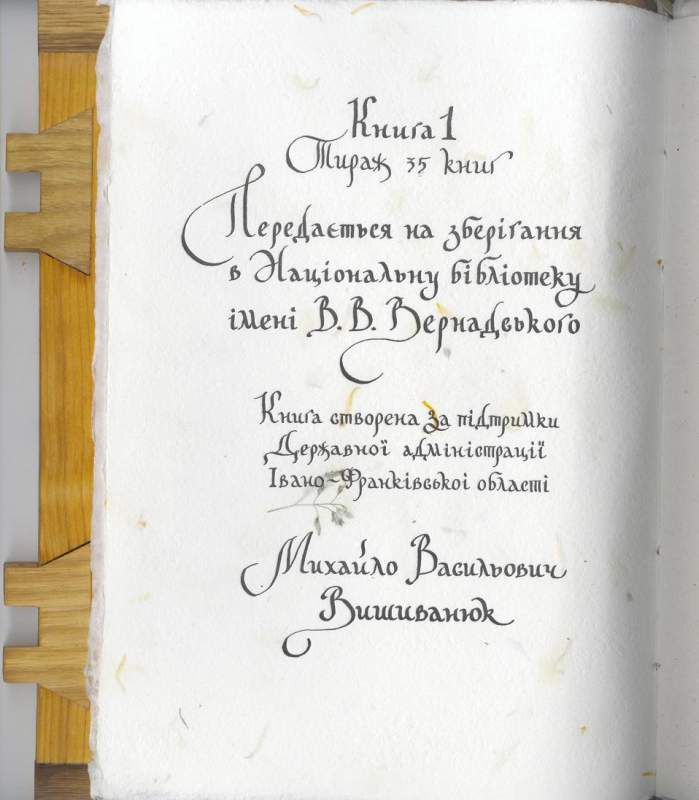 Книга 1
Тираж 35 книг
Передається на зберігання
в Національну бібліотеку
імені В. В. Вернадського
Книга створена за підтримки
Державної адміністрації
Івано-Франківської області
Михайло Васильович
Вишиванюк